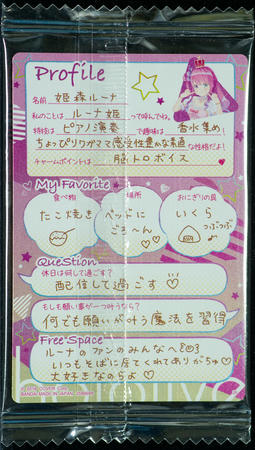 Profile
名前 姫森ルーナ
私のことは ルーナ姫 って呼んでね。
特技は ピアノ演奏 で趣味は 香水集め!
ちょっぴりワガママ感受性豊かな素直 な性格だよ!
チャームポイントは 脳トロボイス
My Favorite
食べ物 場所 おにぎりの具
たこ焼き ベッドにごろ〜ん♡ いくら つぶつぶ♪
QueStion
休日は何して過ごす?
配信して過ごす♡
もしも願い事が一つ叶うなら?
何でも願いが叶う魔法を習得
Free Space
ルーナのファンのみんなへ
いつもそばに居てくれてありがちゅ♡
大好きなのらよ♡